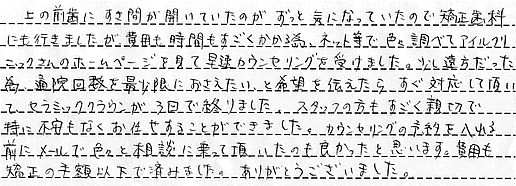 上の前歯にすき間が開いていたのがずっと気になっていたので矯正歯科
にも行きましたが、費用も時間もすごくかかる為、ネット等で色々調べてアイルクリ
ニックさんのホームページを見て早速カウンセリングを受けました。少し遠方だった
為、通院回数を最少限におさえたいと希望を伝えたらすぐ対応して頂い
て、セラミッククラウンが3回で終りました。スタッフの方もすごく親切で
特に不安もなくお任せすることができました。カウンセリングの予約を入れる
前にメールで色々と相談に乗って頂いたのも良かったと思います。費用も
矯正の半額以下で済みました。ありがとうございました。